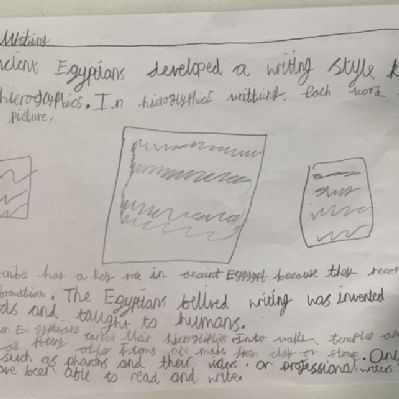 Writing
ncient Egyptians developed a writing style k
hieroglyphics. In hieroglyphics writting. Each work
picture.
ribs has a key role in ancient because they recor
formation. The Egyptians belived writing was invented
ds and taught to humans.
hieroglyphics into walls, temples a
as other items are made from clay or stone. Only
such as pharohs and their or professional writers
ave been able to read and write.